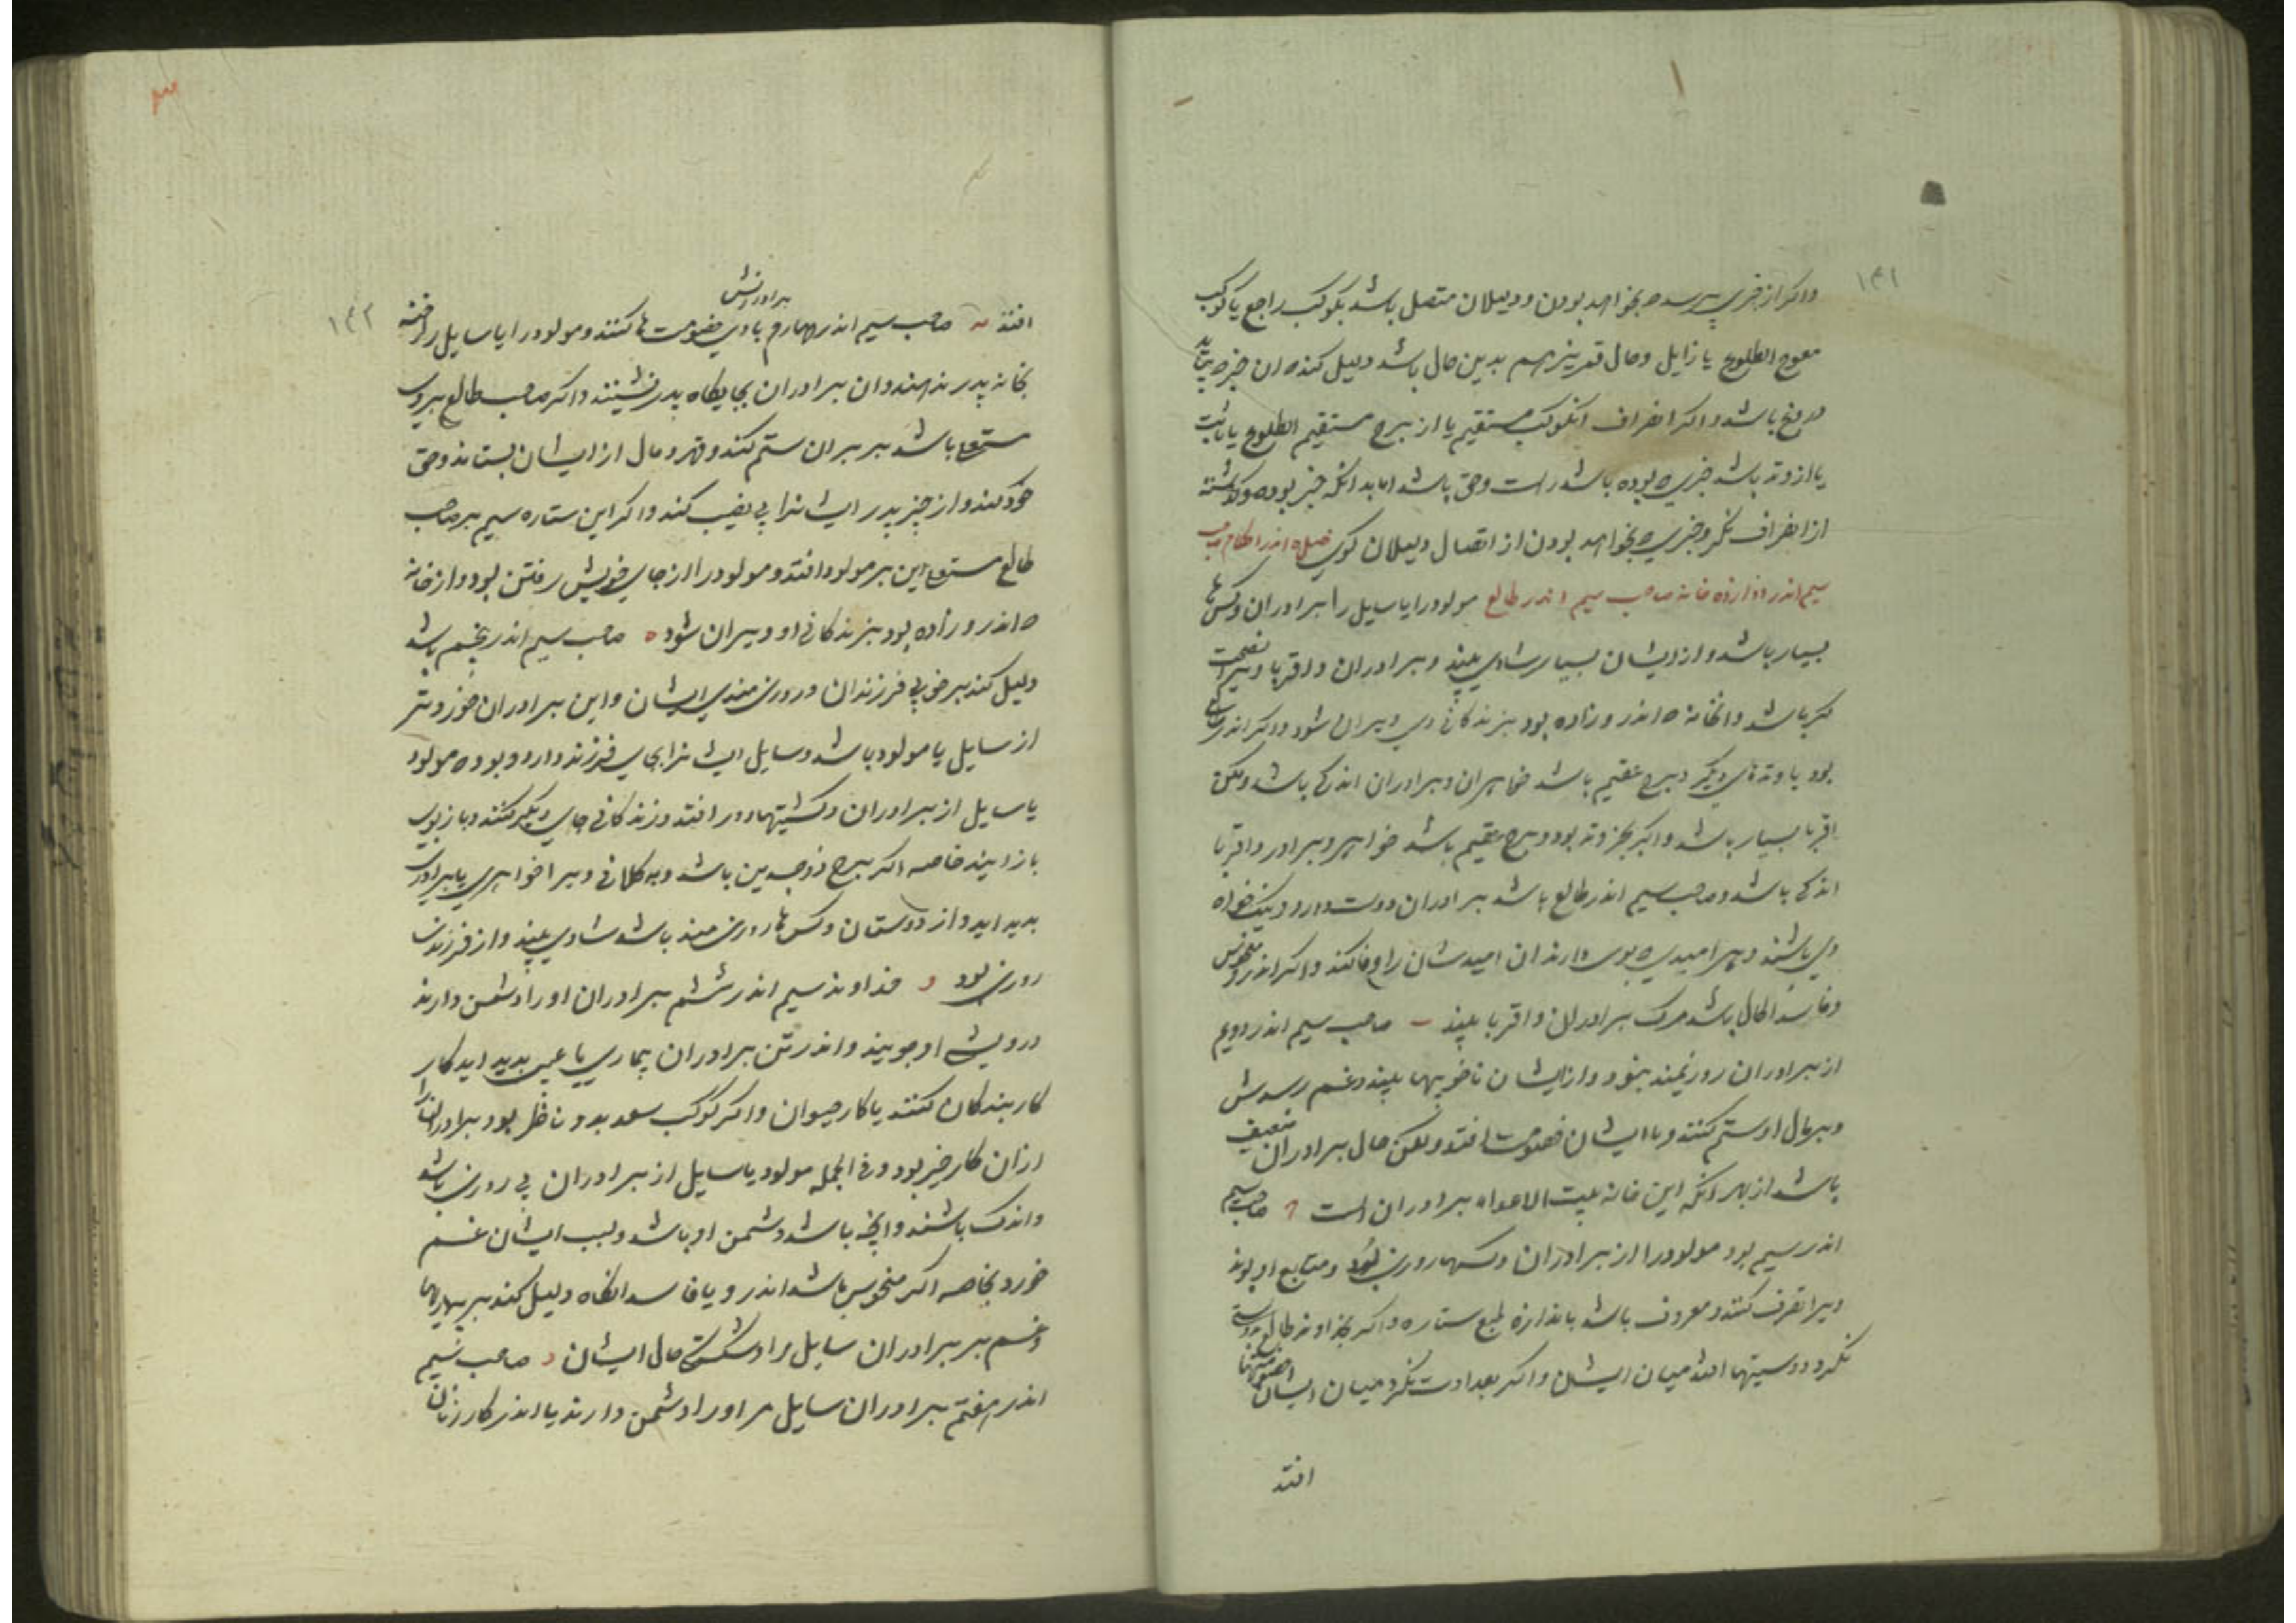 ۱۴۱
واکر از خبری پرسد که بخواهد بودن و دلیلان متصل باشد بکوکب راجع یا کوکب
معوج الطلوع یا زایل وحال قمر نیز هم بدین حال باشد دلیل کند که ان خبر
دروغ باشد واکر انصراف از کوکب مستقیم یا از برج مستقیم الطلوع یا ثابت
یا از وتد باشد خبری که بوده باشد راست وحق باشد اما بدانکه خبر بوده وکذشته
از انصراف نکر وخبری که بخواهد بودن از اتصال دلیلان کوی فصل اندر احکام صاحب
سیم اندر دوازده خانه صاحب سیم اندر طالع مولود را یا سایل را برادران وکس ها
بسیار باشد واز ایشان بسیار شادی بیند وبرادران واقربا ویرا نصیحت
کر باشد وانخانه که اندر و زاده بود بزندکانی وی ویران شود واکر اندر
بود یا وتدهای دیکر وبرج عقیم باشد خواهران وبرادران اندکی باشد ولکن
اقربا بسیار باشد واکر بجز وتد بود وبرج عقیم باشد خواهر وبرادر واقربا
اندکی باشد وصاحب سیم اندر طالع باشد برادران دوست دارد ونیک خواه
وی باشند وهر امیدی که بوی دارند ان امیدشان را وفا کند واکر اندرو منحوس
وفاسد الحال باشد مرک برادران واقربا بیند ب صاحب سیم اندر دویم
از برادران روزیمند بنود واز ایشان ناخوبیها بیند وغم رسدش
وبر مال او ستم کنند وبا ایشان خصومت افتد ولکن حال برادران ضعیف
باشد از بهر انکه این خانه بیت الاعداء برادران است ج صاحب سیم
اندر سیم بود مولود را از برادران وکسها روزی بود ومتابع او بوند
ویرا تصرف کنند ومعروف باشد باندازه طبع ستاره واکر بخداوند طالع بدوستی
نکرد دوستیها افتد میان ایشان واکر بعداوت نکرد میان ایشان خصومتها
افتد
۱۴۲
افتد د صاحب سیم اندر چهارم با وی برادرانش خصومت ها کنند ومولود را یا سایل را رخنه
بخانه پدر ندهند وان برادران بجایکاه پدر نشینند واکر صاحب طالع بروی
مستعلی باشد بر برادران ستم کند وقهر ومال از ایشان بستاند وحق
خود کند واز چیز پدر ایشانرا بی نصیب کند واکر این ستاره سیم بر صاحب
طالع مستعلی این بر مولود افتد ومولود را از جای خویش رفتن بود واز خانه
که اندر و زاده بود بزندکانی او ویران شود ه صاحب سیم اندر پنجم باشد
دلیل کند بر خوبی فرزندان وروزی مندی ایشان واین برادران خورد تر
از سایل یا مولود باشد وسایل ایشانرا بجای فرزند دارد وبود که مولود
یا سایل از برادران وکشیتها دور افتد وزندکانی جای دیکر کنند وباز بوی
باز ایند خاصه اکر برج ذوجسدین باشد وبه کلانی ویرا خواهری یا برادری
بدید اید واز دوستان وکس ها روزی مند باشد شادی بیند واز فرزندان
روزی بود و خداوند سیم اندر ششم برادران او را دشمن دارند
درویشی او جویند واندر تن برادران بیماری یا عیبی بدید اید کار
کار بندکان کنند یا کار حیوان واکر کوکب سعد بدو ناظر بود برادرانرا
ازان کار خیر بود وفی الجمله مولود یا سایل از برادران بی روزی باشد
واندک باشند وانچه باشد دشمن او باشد وبسبب ایشان غم
خورد بخاصه اکر منحوس باشد اندرو یا فاسد انکاه دلیل کند بر بیماریها
وغم بر برادران سایل مراد شکستکی حال ایشان ز صاحب سیم
اندر هفتم برادران سایل مر او را دشمن دارند یا اندر کار زنان